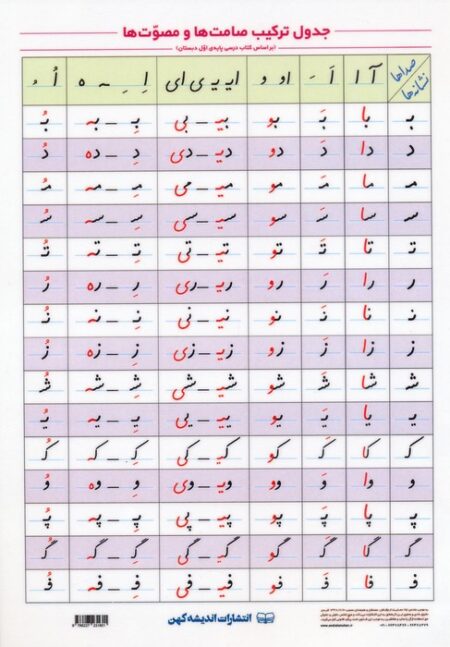 جدول ترکیب صامت‌ها و مصوّت‌ها
(بر اساس کتاب درسی پایه‌ی اوّل دبستان)
صداها نشانه‌ها آ ا اَ ـَ او و ایـ یـ ی ای اِ ـِ ـه ه اُ ـُ
بـ با بَ بو بیـ ـ بی بِـ ـ به بُ
د دا دَ دو دیـ ـ دی دِ ـ ده دُ
مـ ما مَـ مو میـ ـ می مِـ ـ مه مُـ
سـ سا سَـ سو سیـ ـ سی سِـ ـ سه سُـ
تـ تا تَـ تو تیـ ـ تی تِـ ـ ته تُـ
ر را رَ رو ریـ ـ ری رِ ـ ره رُ
نـ نا نَـ نو نیـ ـ نی نِـ ـ نه نُـ
ز زا زَ زو زیـ ـ زی زِ ـ زه زُ
شـ شا شَـ شو شیـ ـ شی شِـ ـ شه شُـ
یـ یا یَـ یو ییـ ـ یی یِـ ـ یه یُـ
کـ کا کَـ کو کیـ ـ کی کِـ ـ که کُـ
و وا وَ وو ویـ ـ وی وِ ـ وه وُ
پـ پا پَـ پو پیـ ـ پی پِـ ـ په پُـ
گـ گا گَـ گو گیـ ـ گی گِـ ـ گه گُـ
فـ فا فَـ فو فیـ ـ فی فِـ ـ فه فُـ
انتشارات اندیشه کهن